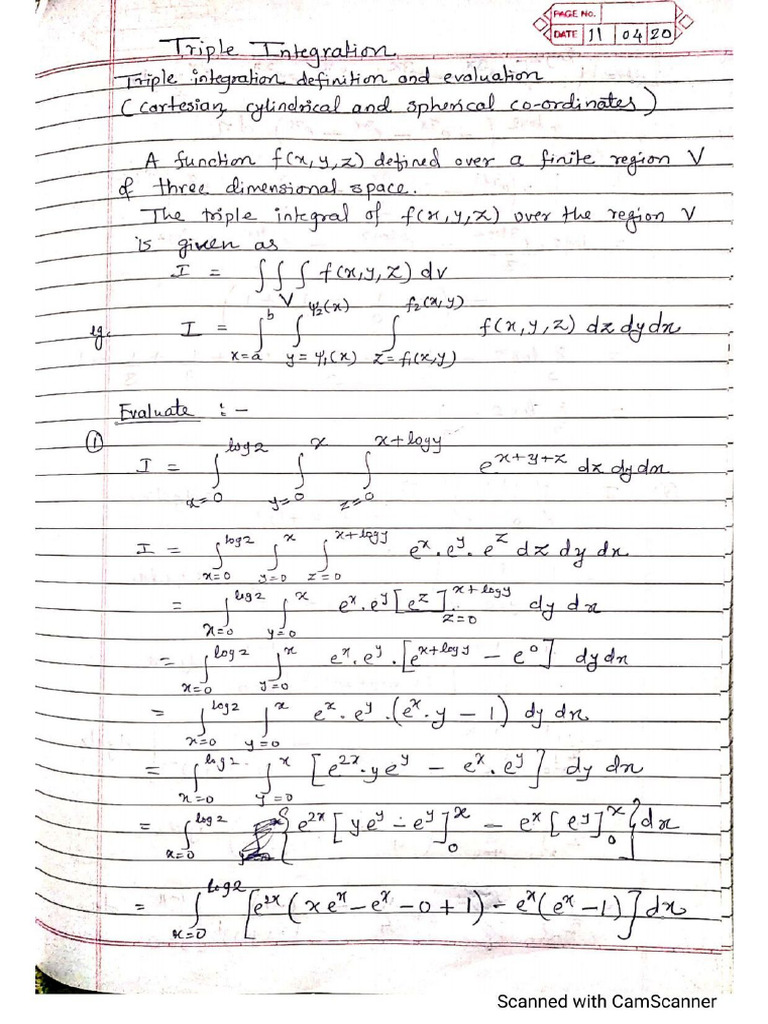 PAGE No.
DATE 11 04 20
Triple Integration
Triple integration definition and evaluation
(cartesian, cylindrical and spherical co-ordinates)
A function f(x,y,z) defined over a finite region V
of three dimensional space.
The triple integral of f(x,y,z) over the region V
is given as
I = ∫∫∫_V f(x,y,z) dv
eg. I = ∫_{x=a}^{b} ∫_{y=ψ₁(x)}^{ψ₂(x)} ∫_{z=f₁(x,y)}^{f₂(x,y)} f(x,y,z) dz dy dx
Evaluate :-
① I = ∫_{x=0}^{log2} ∫_{y=0}^{x} ∫_{z=0}^{x+logy} e^{x+y+z} dz dy dx
I = ∫_{x=0}^{log2} ∫_{y=0}^{x} ∫_{z=0}^{x+logy} e^x.e^y.e^z dz dy dx
= ∫_{x=0}^{log2} ∫_{y=0}^{x} e^x.e^y [e^z]_{z=0}^{x+logy} dy dx
= ∫_{x=0}^{log2} ∫_{y=0}^{x} e^x.e^y.[e^{x+logy} - e^0] dy dx
= ∫_{x=0}^{log2} ∫_{y=0}^{x} e^x.e^y.(e^x.y - 1) dy dx
= ∫_{x=0}^{log2} ∫_{y=0}^{x} [e^{2x}.ye^y - e^x.e^y] dy dx
= ∫_{x=0}^{log2} {e^{2x}[ye^y - e^y]_0^x - e^x[e^y]_0^x} dx
= ∫_{x=0}^{log2} [e^{2x}(xe^x - e^x - 0 + 1) - e^x(e^x - 1)] dx
Scanned with CamScanner